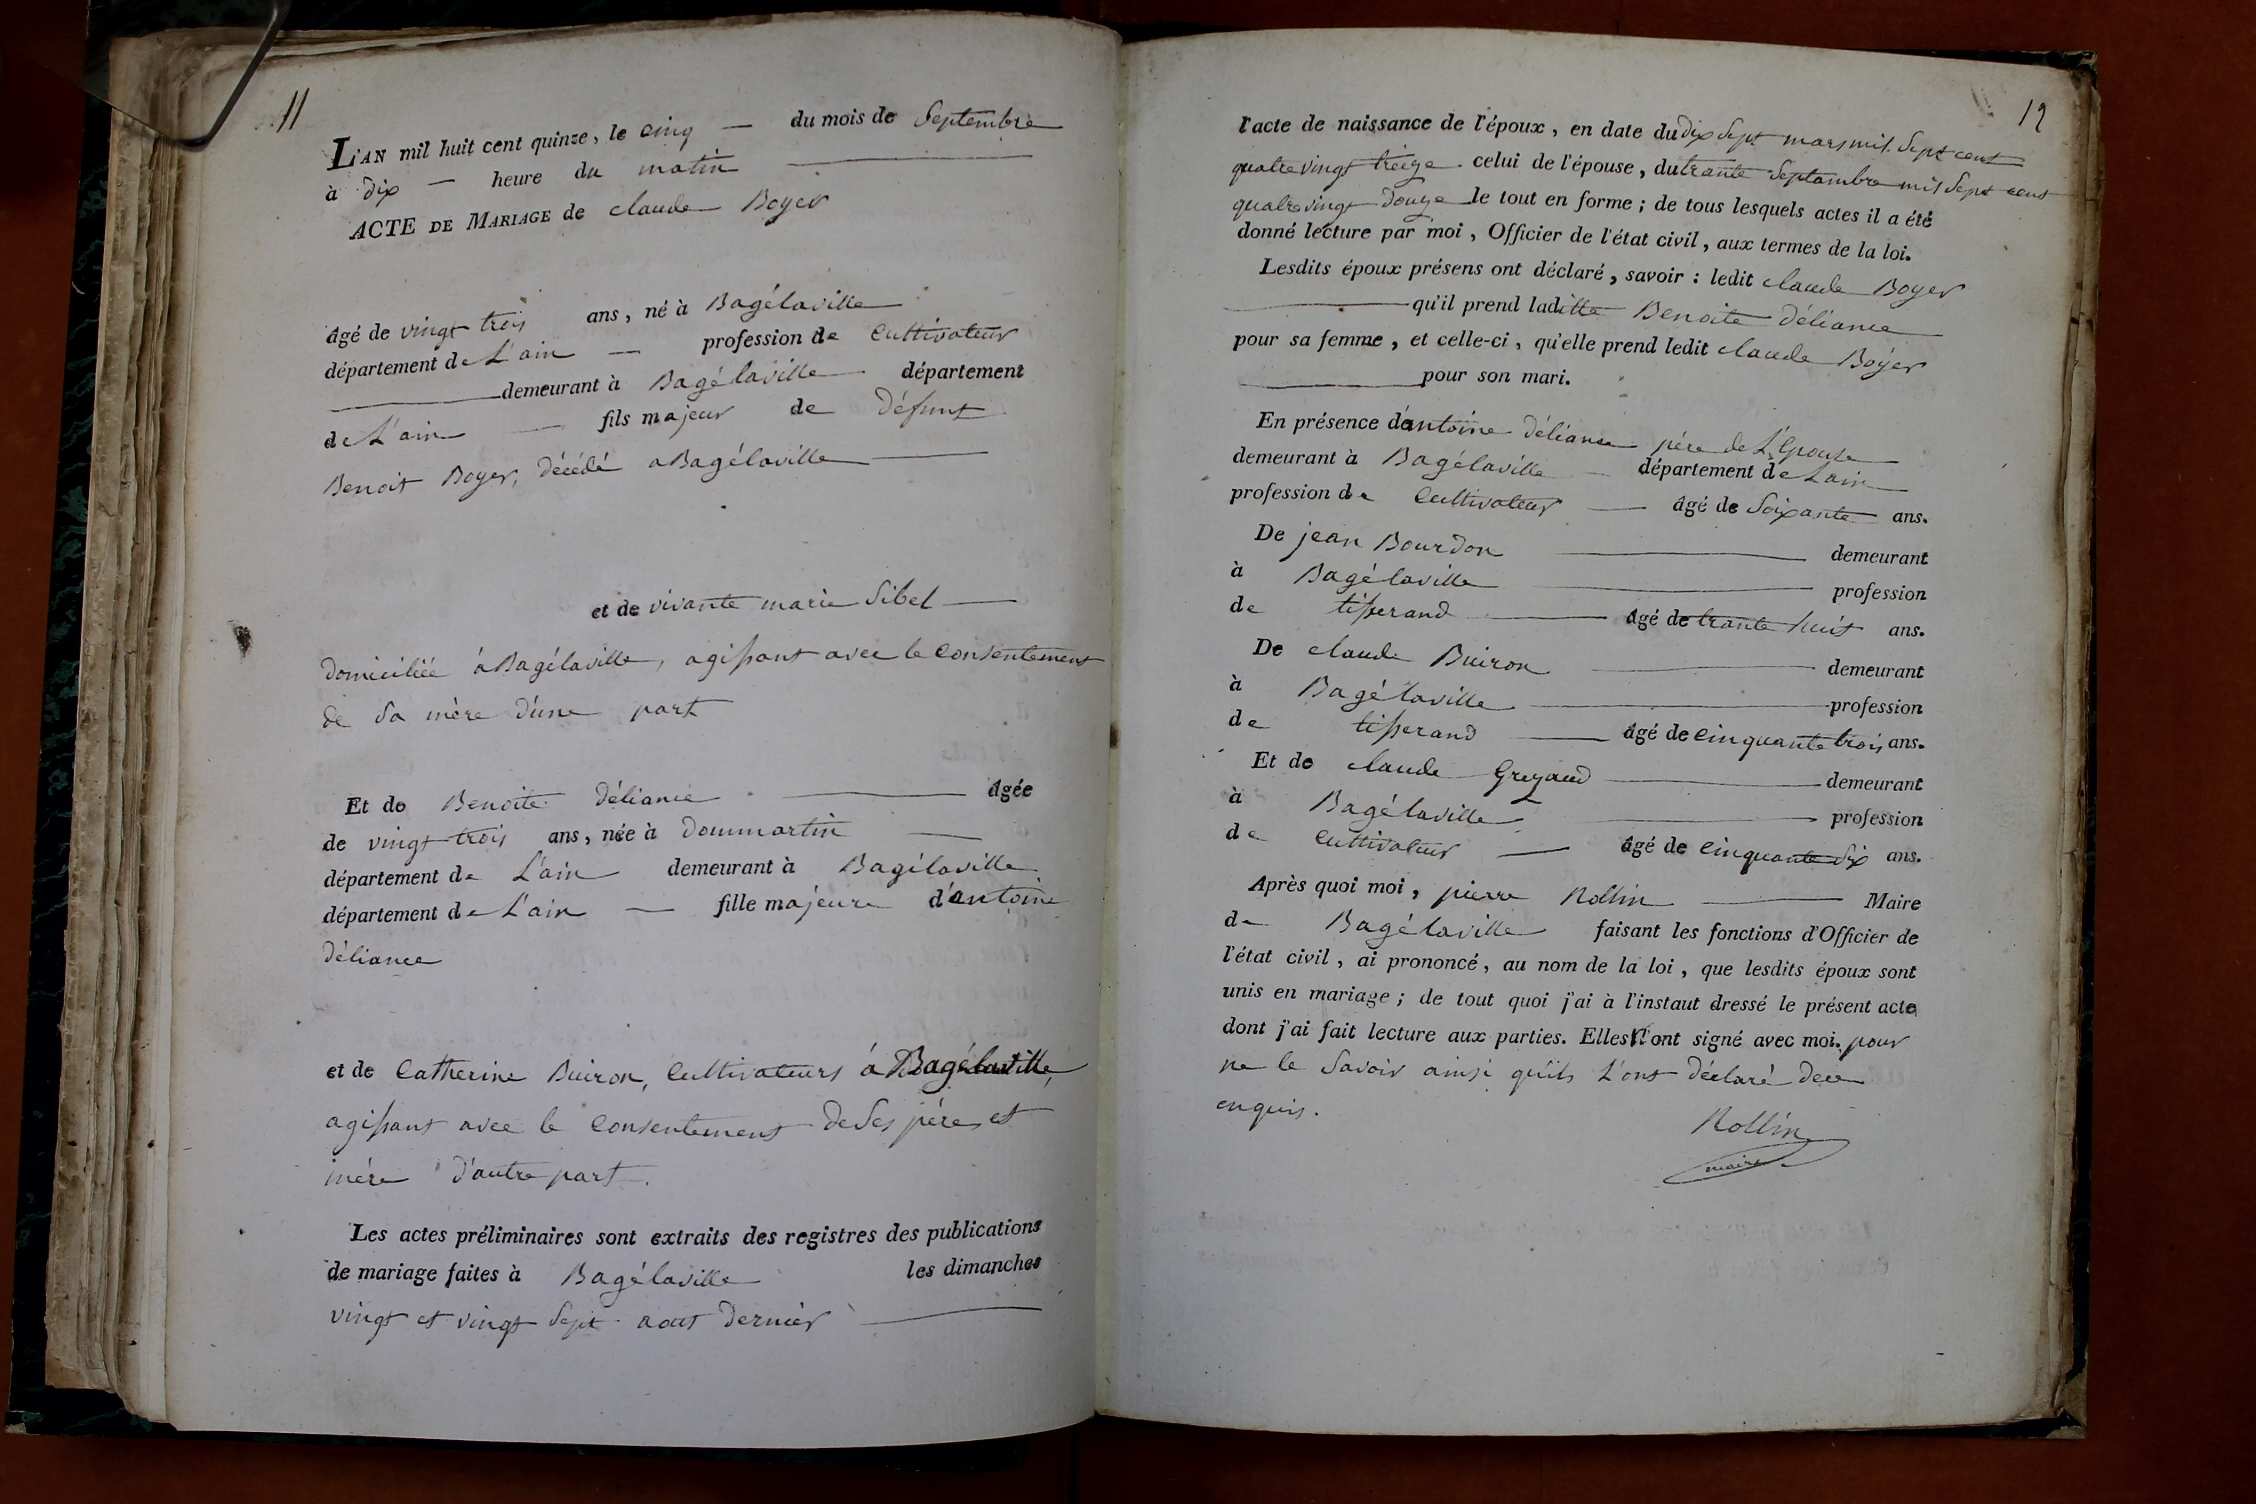 11
L'AN mil huit cent quinze, le cinq du mois de Septembre
à dix heure du matin
ACTE DE MARIAGE de claude Boyer
âgé de vingt trois ans, né à Bagélaville
département de L'ain profession de Cultivateur
demeurant à Bagélaville département
de L'ain fils majeur de défunt
Benoit Boyer, décédé a Bagélaville
et de vivante marie Sibel
domiciliée à Bagélaville, agissant avec le Consentement
de Sa mère d'une part
Et de Benoite déliance âgée
de vingt trois ans, née à dommartin
département de L'ain demeurant à Bagélaville
département de L'ain fille majeure d'antoine
déliance
et de Catherine Buiron, Cultivateurs à Bagélaville,
agissant avec le Consentement de Ses père et
mère d'autre part.
Les actes préliminaires sont extraits des registres des publications
de mariage faites à Bagélaville les dimanches
vingt et vingt Sept aout dernier
12
l'acte de naissance de l'époux, en date du dix Sept mars mil Sept cent
quatre vingt treize celui de l'épouse, du trante Septambre mil Sept cent
quatre vingt douze le tout en forme ; de tous lesquels actes il a été
donné lecture par moi, Officier de l'état civil, aux termes de la loi.
Lesdits époux présens ont déclaré, savoir : ledit claude Boyer
qu'il prend laditte Benoite déliance
pour sa femme, et celle-ci, qu'elle prend ledit claude Boyer
pour son mari.
En présence d'antoine déliance père de L'Epouse
demeurant à Bagélaville département de Lain
profession de Cultivateur âgé de Soixante ans.
De jean Bourdon demeurant
à Bagélaville profession
de tisserand âgé de trante huit ans.
De claude Buiron demeurant
à Bagélaville profession
de tisserand âgé de Cinquante trois ans.
Et de claude demeurant
à Bagélaville profession
de Cultivateur âgé de Cinquante Six ans.
Après quoi moi, pierre Rollin Maire
de Bagélaville faisant les fonctions d'Officier de
l'état civil, ai prononcé, au nom de la loi, que lesdits époux sont
unis en mariage ; de tout quoi j'ai à l'instaut dressé le présent acte
dont j'ai fait lecture aux parties. Elles n'ont signé avec moi. pour
ne le Savoir ainsi qu'ils L'ont déclaré de ce
enquis.
Rollin
maire